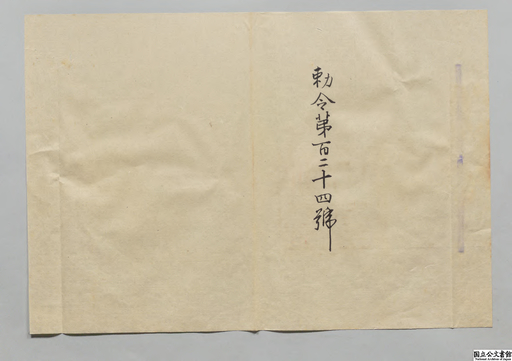 勅令第百二十四號
国立公文書館
National Archives of Japan